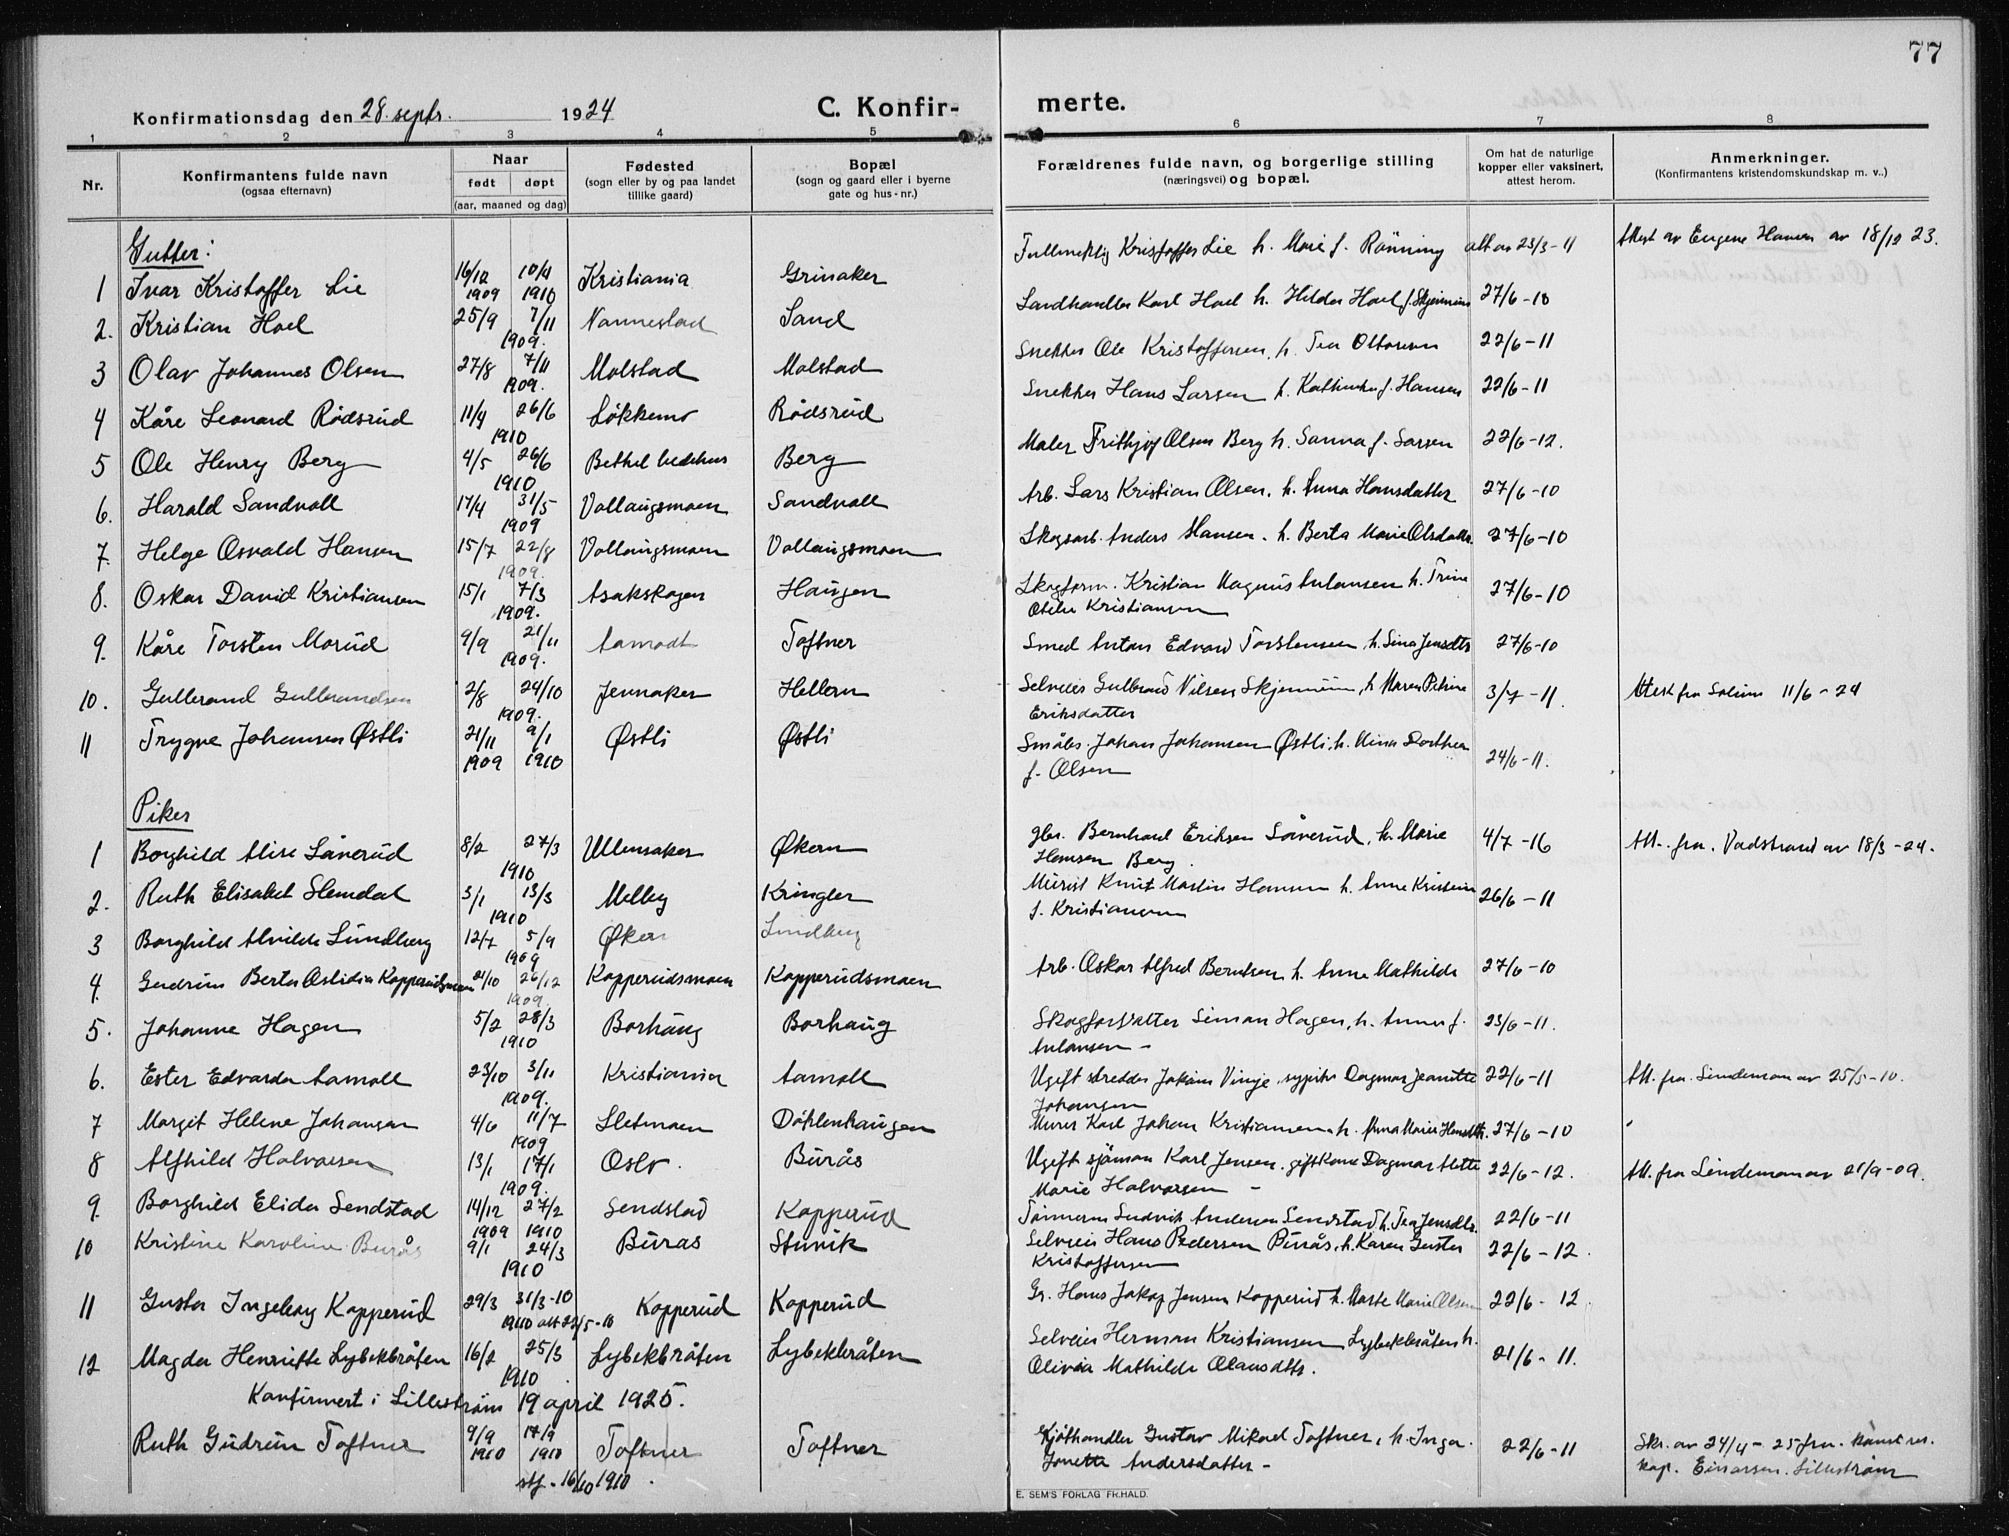 77
Konfirmationsdag den 28. septr. 1924
C. Konfirmerte.
1 2 3 4 5 6 7 8
Nr.
Konfirmantens fulde navn
(ogsaa efternavn)
Naar
født døpt
(aar, maaned og dag)
Fødested
(sogn eller by og paa landet
tillike gaard)
Bopæl
(sogn og gaard eller i byerne
gate og hus-nr.)
Forældrenes fulde navn, og borgerlige stilling
(næringsvei) og bopæl.
Om hat de naturlige
kopper eller vaksinert,
attest herom.
Anmerkninger.
(Konfirmantens kristendomskundskap m. v..)
Gutter:
1 Ivar Kristoffer Lie 16/12 1909 10/4 1910 Kristiania Grinaker Fullmektig Kristoffer Lie h. Marie f. Rønning att av 23/3-11 Attest av Eugene Hansen av 18/12 23.
2. Kristian Hoel 25/9 7/11 1909. Nannestad Sand Landhandler Karl Hoel h. Hilda Hoel f. Skjennum 27/6-10
3 Olav Johannes Olsen 27/8 7/11 1909. Molstad Molstad Snekker Ole Kristoffersen, h. Tea Ottersen 22/6-11
4 Kåre Leonard Rødsrud 11/4 26/6 1910 Løkkemo Rødsrud Snekker Hans Larsen h. Kathinka f. Hansen 22/6-11
5 Ole Henry Berg 4/5 26/6 1910 Bethel bedehus Berg Maler Frithjof Olsen Berg h. Sanna f. Larsen 22/6-12.
6. Harald Sandvoll 17/4 31/5 1909 Vollaugsmoen Sandvoll Arb. Lars Kristian Olsen, h. Anna Hansdatter 27/6-10
7. Helge Osvald Hansen 15/7 22/8 1909. Vollaugsmoen Vollaugsmoen Skogsarb. Anders Hansen. h. Berta Marie Olsdatter 27/6-10
8. Oskar David Kristiansen 15/1 7/3 1909. Asakskogen Haugen Skogform. Kristian Magnus Anlansen h. Trine
Otilie Kristiansen 27/6-10
9. Kåre Torsten Morud 9/9 21/11 1909. Aamodt Toftner Smed Anton Edvard Torstensen, h. Lina Jensdtr 27/6-10
10. Gulbrand Gulbrandsen 2/8 24/10 1909. Jennaker Hellern Selveier Gulbrand Nilsen Skjennum, h. Maren Petrine
Eriksdatter 3/7-11. Attest fra Solum 11/6-24
11 Trygve Johansen Østli 21/11 1909 9/1 1910 Østli Østli Småbr. Johan Johansen Østli, h. Mina Dorthea
f. Olsen 24/6-11.
Piker
1 Borghild Alise Låverud 8/2 27/3 1910 Ullensaker Økern gbr. Bernhard Eriksen Låverud, h. Marie
Hansen Berg. 4/7-16 Att. fra. Vadstrand av 18/3-24.
2. Ruth Elisabet Slemdal 3/1 13/3 1910 Melby Kringler Murist Knut Martin Hansen h. Anne Kristine
f. Kristiansen 26/6-11
3 Borghild Alvilde Lundberg 12/7 5/9 1909 Økern Lundberg
4. Gudrun Berta Aslidia Kopperudsmoen 21/10 26/12 1909. Kopperudsmoen Kopperudsmoen Arb. Oskar Alfred Berntsen h. Anna Mathilde 27/6-10
5. Johanne Hagen 5/2 28/3 1910 Borhaug Borhaug Skogforvalter Simon Hagen, h. Anna f.
Anlansen - 23/6-11.
6. Ester Edvarda Aamoll 23/10 3/11 1909. Kristiania Aamoll Ugift skredder Jokum Vinje, sypike Dagmar Jeanette
Johansen 22/6-11 Att. fra. Lindeman av 25/5-10.
7 Margit Helene Johansen 4/6 11/7 1909 Sletmoen Døhlenhaugen Murer Karl Johan Kristiansen h. Anna Marie Hansdtr. 27/6-10
8 Alfhild Halvorsen 13/1 17/1 1909. Oslo. Burås Ugift sjømann Karl Jensen. gift kone Dagmar Alette
Marie Halvorsen - 22/6-12. Att. fra Lindeman av 21/9-09.
9. Borghild Elida Sendstad 14/12 1909 27/2 1910 Sendstad Kopperud Tømmerm Ludvik Andersen Sendstad h. Tea Jensdtr. 22/6-11
10 Kristine Karoline Burås 9/1 24/3 1910 Burås Stuvik Selveier Hans Pedersen Burås, h. Karen Gusta
Kristoffersen 22/6-12.
11 Gusta Ingeborg Kopperud 29/3 31/3-10 1910 att 22/5-10 Kopperud Kopperud Gr. Hans Jakop Jensen Kopperud h. Marte Marie Olsen 22/6-12.
12 Magda Henriette Lybekbråten 16/2 25/3 1910 Lybekbråten Lybekbråten Selveier Herman Kristiansen Lybekbråten h.
Olivia Mathilde Olausdtr. 21/6-11.
Konfirmert i Lillestrøm 19 april 1925.
Ruth Gudrun Toftner 9/9 1910 17/9 1910 Toftner Toftner Kjøthandler Gustav Mikael Toftner, h. Inga
Jonette Andersdatter - 22/6-11 Skr. av 24/4-25 fra. konst. res.
kap. Einarsen. Lillestrøm
stf. 16/10 1910.
E. SEM'S FORLAG FR.HALD.